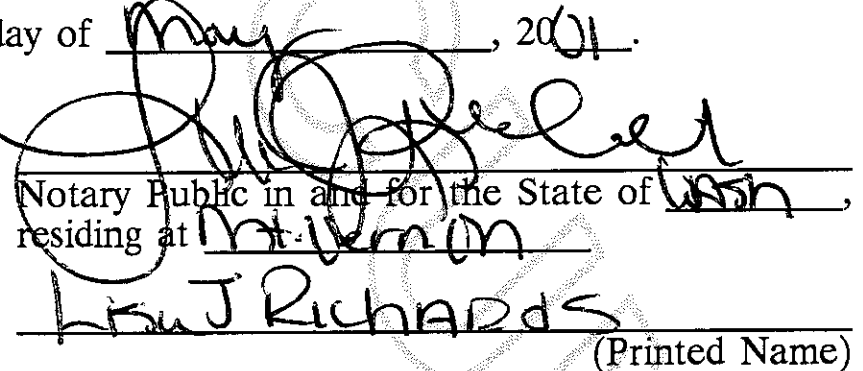 day of May, 2001.
Notary Public in and for the State of WASH,
residing at Mt. Vernon
J RICHARDS
(Printed Name)